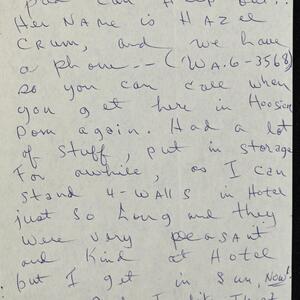 pad can Help out..
Her NAme is HAZel
CRUM, and we have
a phone -- (WA.6-3568)
so you can call when
you get here in Hoosier
Dom again. Had a lot
of stuff, put in storage
For awhile, as I can
stand 4-WAlls in Hotel
just so long and they
were very pleasant
and Kind at Hotel
but I get in Sun, Now!
I